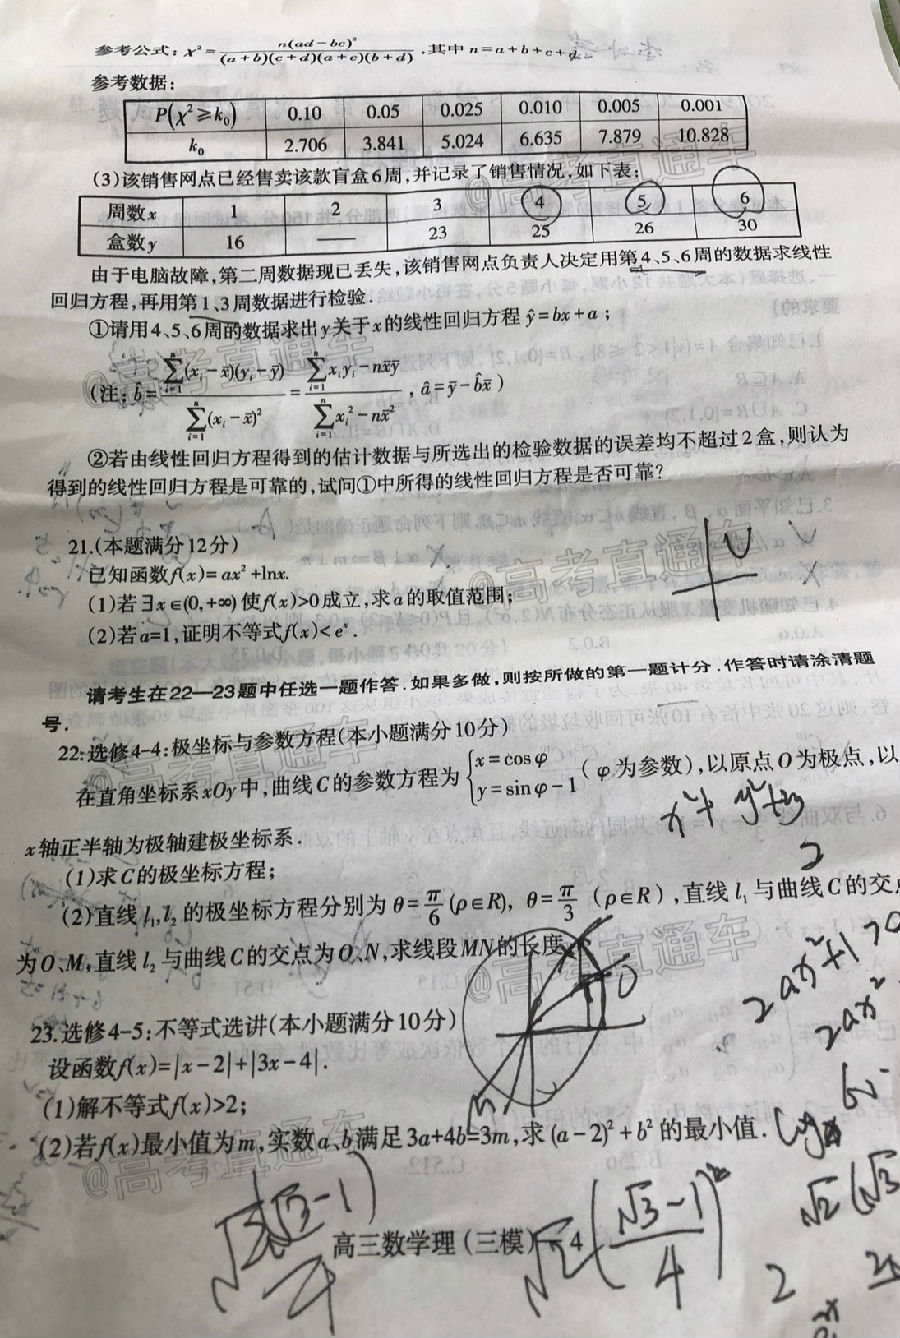 参考公式：χ²=n(ad-bc)²/(a+b)(c+d)(a+c)(b+d)，其中n=a+b+c+d
参考数据：
P(χ²≥k₀) 0.10 0.05 0.025 0.010 0.005 0.001
k₀ 2.706 3.841 5.024 6.635 7.879 10.828
(3)该销售网点已经售卖该款盲盒6周，并记录了销售情况，如下表：
周数x 1 2 3 4 5 6
盒数y 16 —— 23 25 26 30
由于电脑故障，第二周数据现已丢失，该销售网点负责人决定用第4、5、6周的数据求线性
回归方程，再用第1、3周数据进行检验.
①请用4、5、6周的数据求出y关于x的线性回归方程ŷ=bx+a；
(注：b̂=∑(xᵢ-x̄)(yᵢ-ȳ)/∑(xᵢ-x̄)²=∑xᵢyᵢ-nx̄ȳ/∑xᵢ²-nx̄²，â=ȳ-b̂x̄)
②若由线性回归方程得到的估计数据与所选出的检验数据的误差均不超过2盒，则认为
得到的线性回归方程是可靠的，试问①中所得的线性回归方程是否可靠？
21.(本题满分12分)
已知函数f(x)=ax²+lnx.
(1)若∃x∈(0,+∞)使f(x)>0成立，求a的取值范围；
(2)若a=1，证明不等式f(x)<eˣ.
请考生在22—23题中任选一题作答.如果多做，则按所做的第一题计分.作答时请涂清题
号.
22.选修4-4:极坐标与参数方程(本小题满分10分)
在直角坐标系xOy中，曲线C的参数方程为{x=cosφ y=sinφ-1 (φ为参数)，以原点O为极点，以
x轴正半轴为极轴建极坐标系.
(1)求C的极坐标方程；
(2)直线l₁,l₂的极坐标方程分别为θ=π/6(ρ∈R), θ=π/3 (ρ∈R)，直线l₁与曲线C的交点
为O、M，直线l₂与曲线C的交点为O、N，求线段MN的长度.
23.选修4-5:不等式选讲(本小题满分10分)
设函数f(x)=|x-2|+|3x-4|.
(1)解不等式f(x)>2；
(2)若f(x)最小值为m，实数a、b满足3a+4b=3m，求(a-2)²+b²的最小值.
高三数学理(三模)-4
@高考直通车